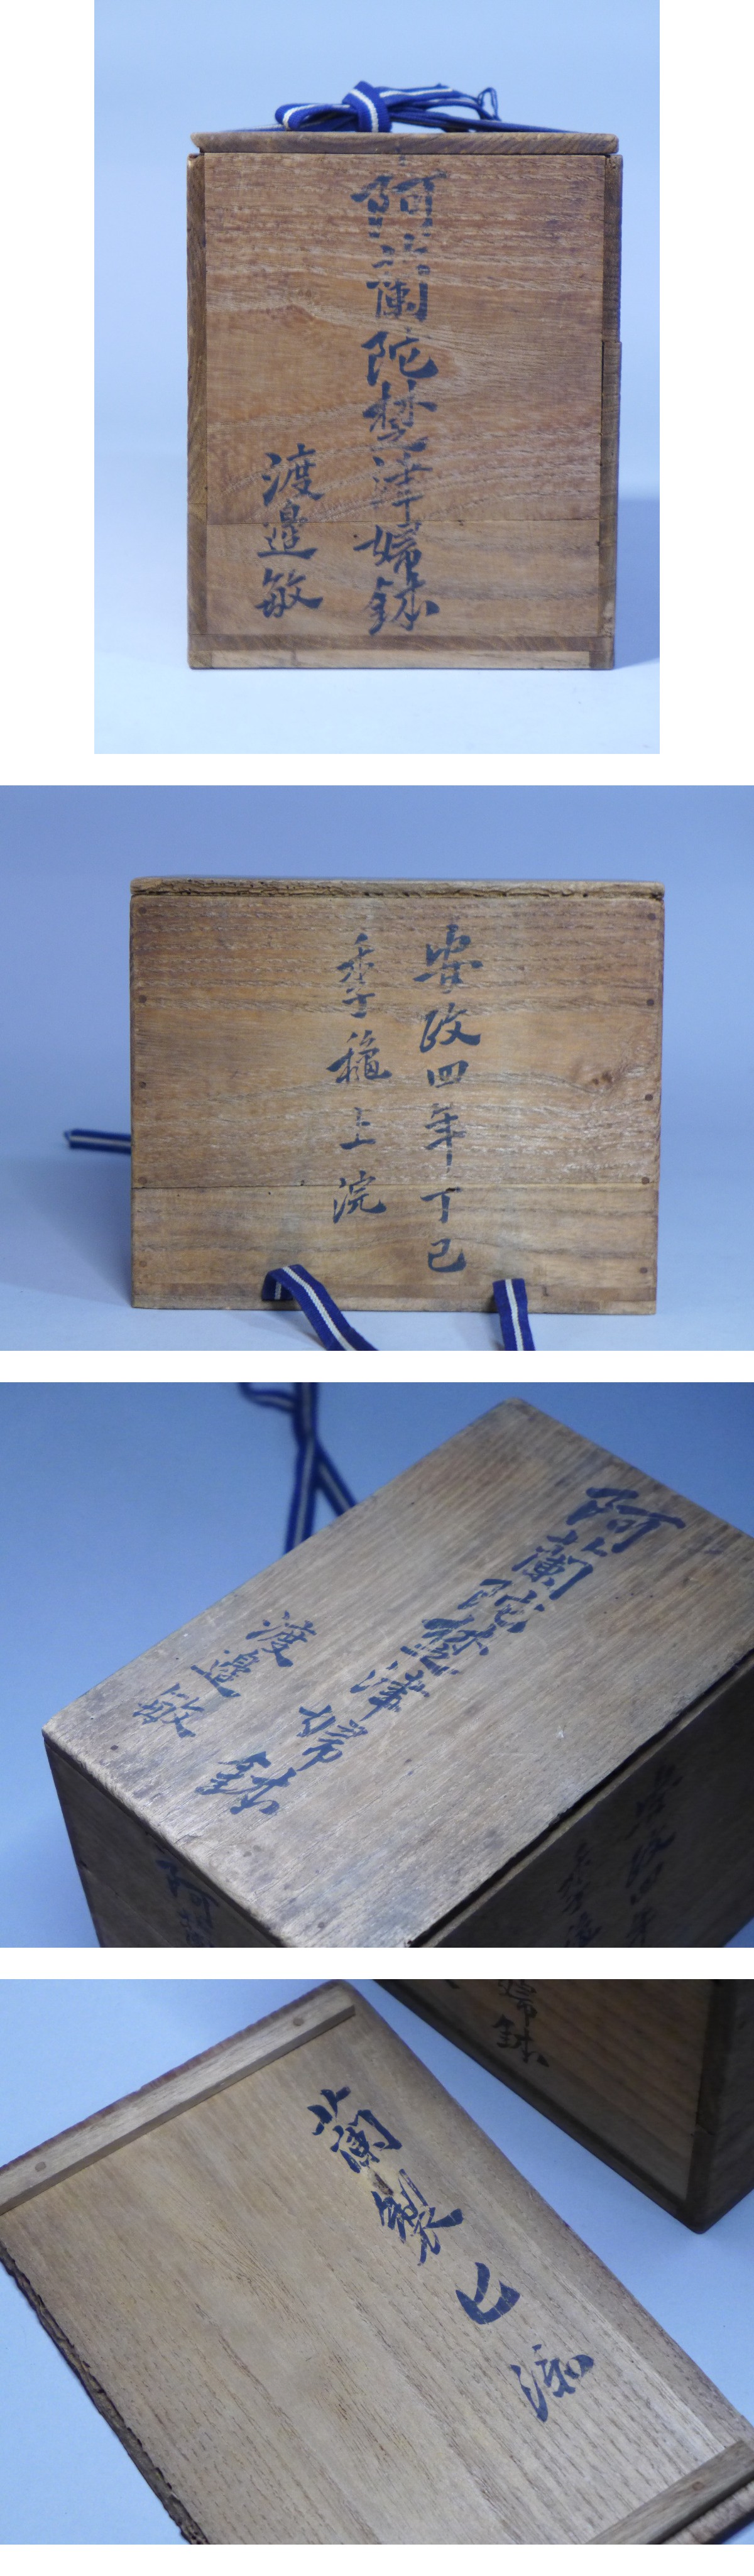 阿蘭陀焚津婦鉢
渡邉敏
安政四年丁巳
季穐上浣
阿蘭陀焚津婦鉢
渡邉敏
阿蘭
安政四年
季穐
蘭製匕添
婦鉢